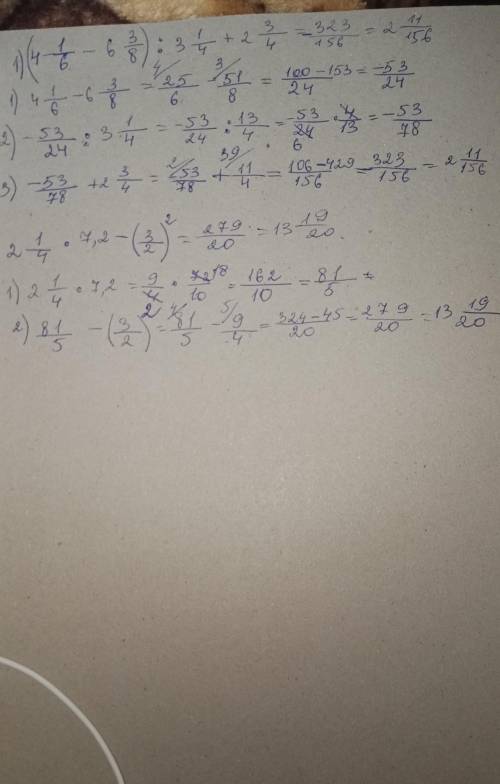 1) (4 1/6 - 6 3/8) : 3 1/4 + 2 3/4 = -323/156 = 2 11/156
1) 4 1/6 - 6 3/8 = 4/ 25/6 - 3/ 51/8 = 100-153/24 = -53/24
2) -53/24 : 3 1/4 = -53/24 : 13/4 = -53/24 6 · 4/13 = -53/78
3) -53/78 + 2 3/4 = 2/ 53/78 + 39/ 11/4 = 106-429/156 = 323/156 = 2 11/156
2 1/4 · 7,2 - (3/2)² = 279/20 = 13 19/20.
1) 2 1/4 · 7,2 = 9/4 2 · 72 18/10 = 162/10 = 81/5
2) 81/5 - (3/2)² = 4/ 81/5 - 5/ 9/4 = 324-45/20 = 279/20 = 13 19/20